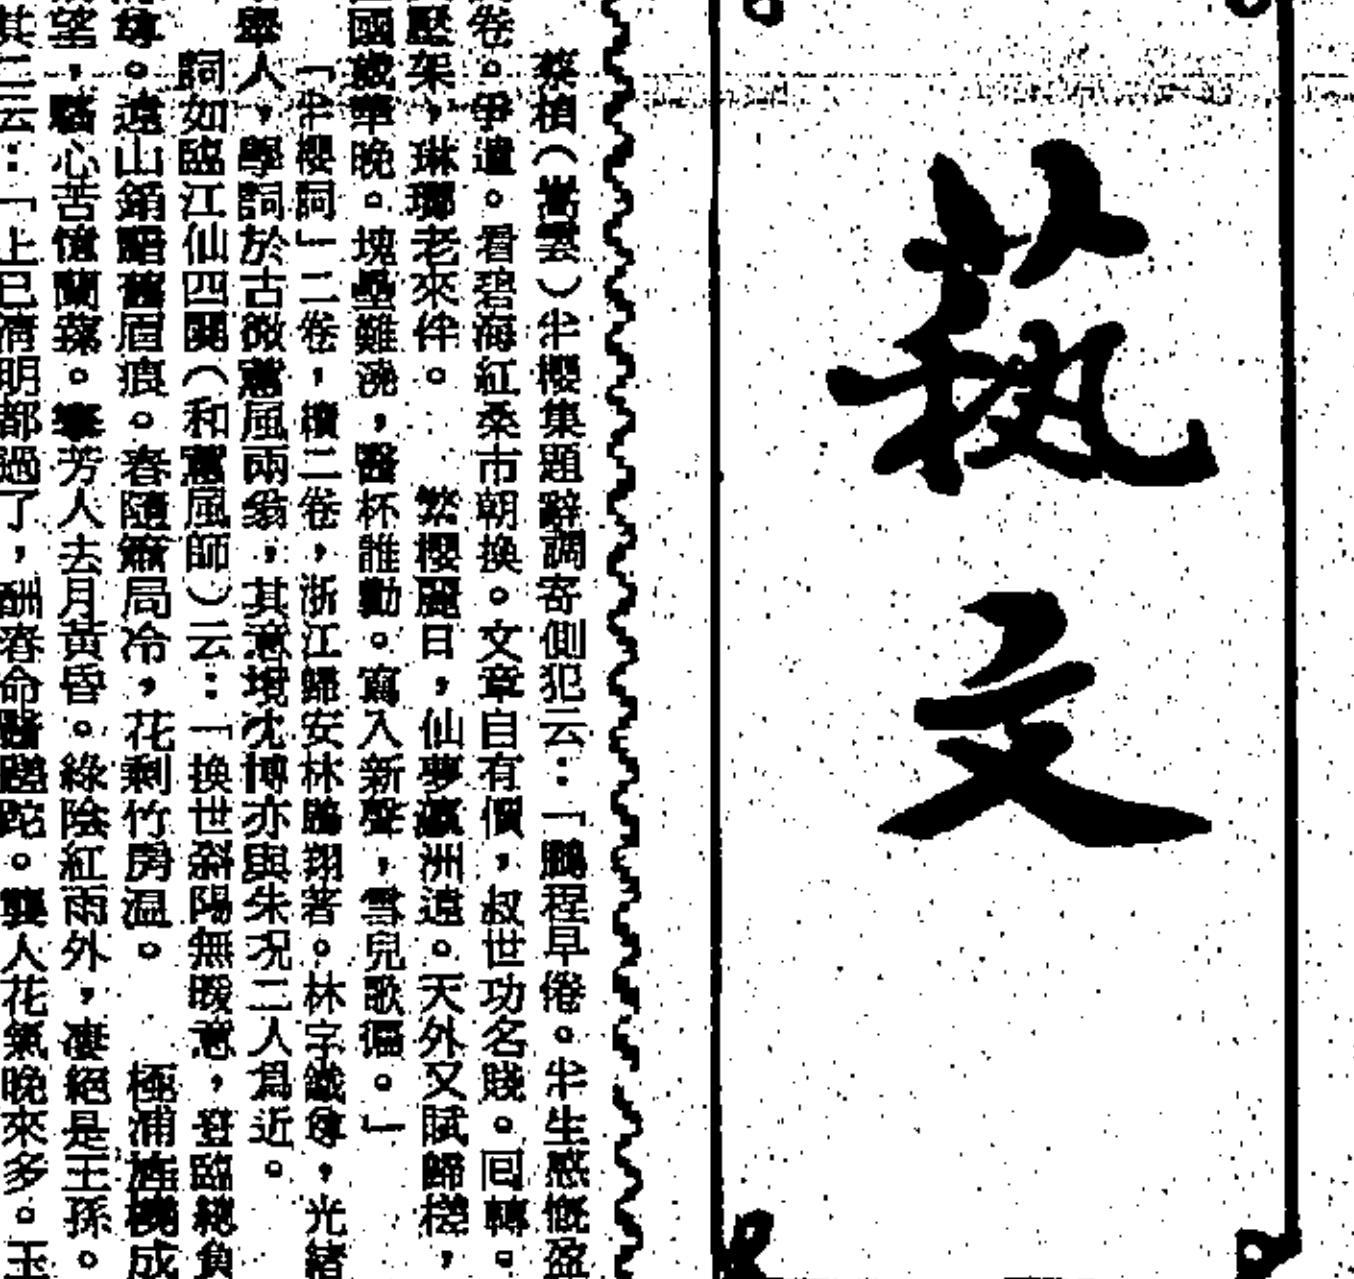 藝文
蔡楨(嵩雲)半櫻集題辭調寄側犯云：「鵬程早倦。半生感慨盈
卷。爭遣。看碧海紅桑市朝換。文章自有價，叔世功名賤。回轉。
壓架，琳瑯老來伴。　繁櫻麗日，仙夢瀛洲遠。天外又賦歸槎，
國歲華晚。塊壘難澆，醫杯誰勸。寫入新聲，雪兒歌徧。」
「半櫻詞」二卷，續二卷，浙江歸安林鵾翔著。林字鐵尊，光緒
舉人，學詞於古微蕙風兩翁，其意境沈博亦與朱况二人爲近。
詞如臨江仙四闋(和蕙風師)云：「換世斜陽無暖意，登臨總負
尊。遠山銷黯舊眉痕。春隨簫局冷，花剩竹房温。　極浦旌橈成
望，騷心苦憶蘭蓀。搴芳人去月黃昏。綠陰紅雨外，凄絕是王孫。
其二云：「上巳清明都過了，酬春命醫蹉跎。襲人花氣晚來多。玉